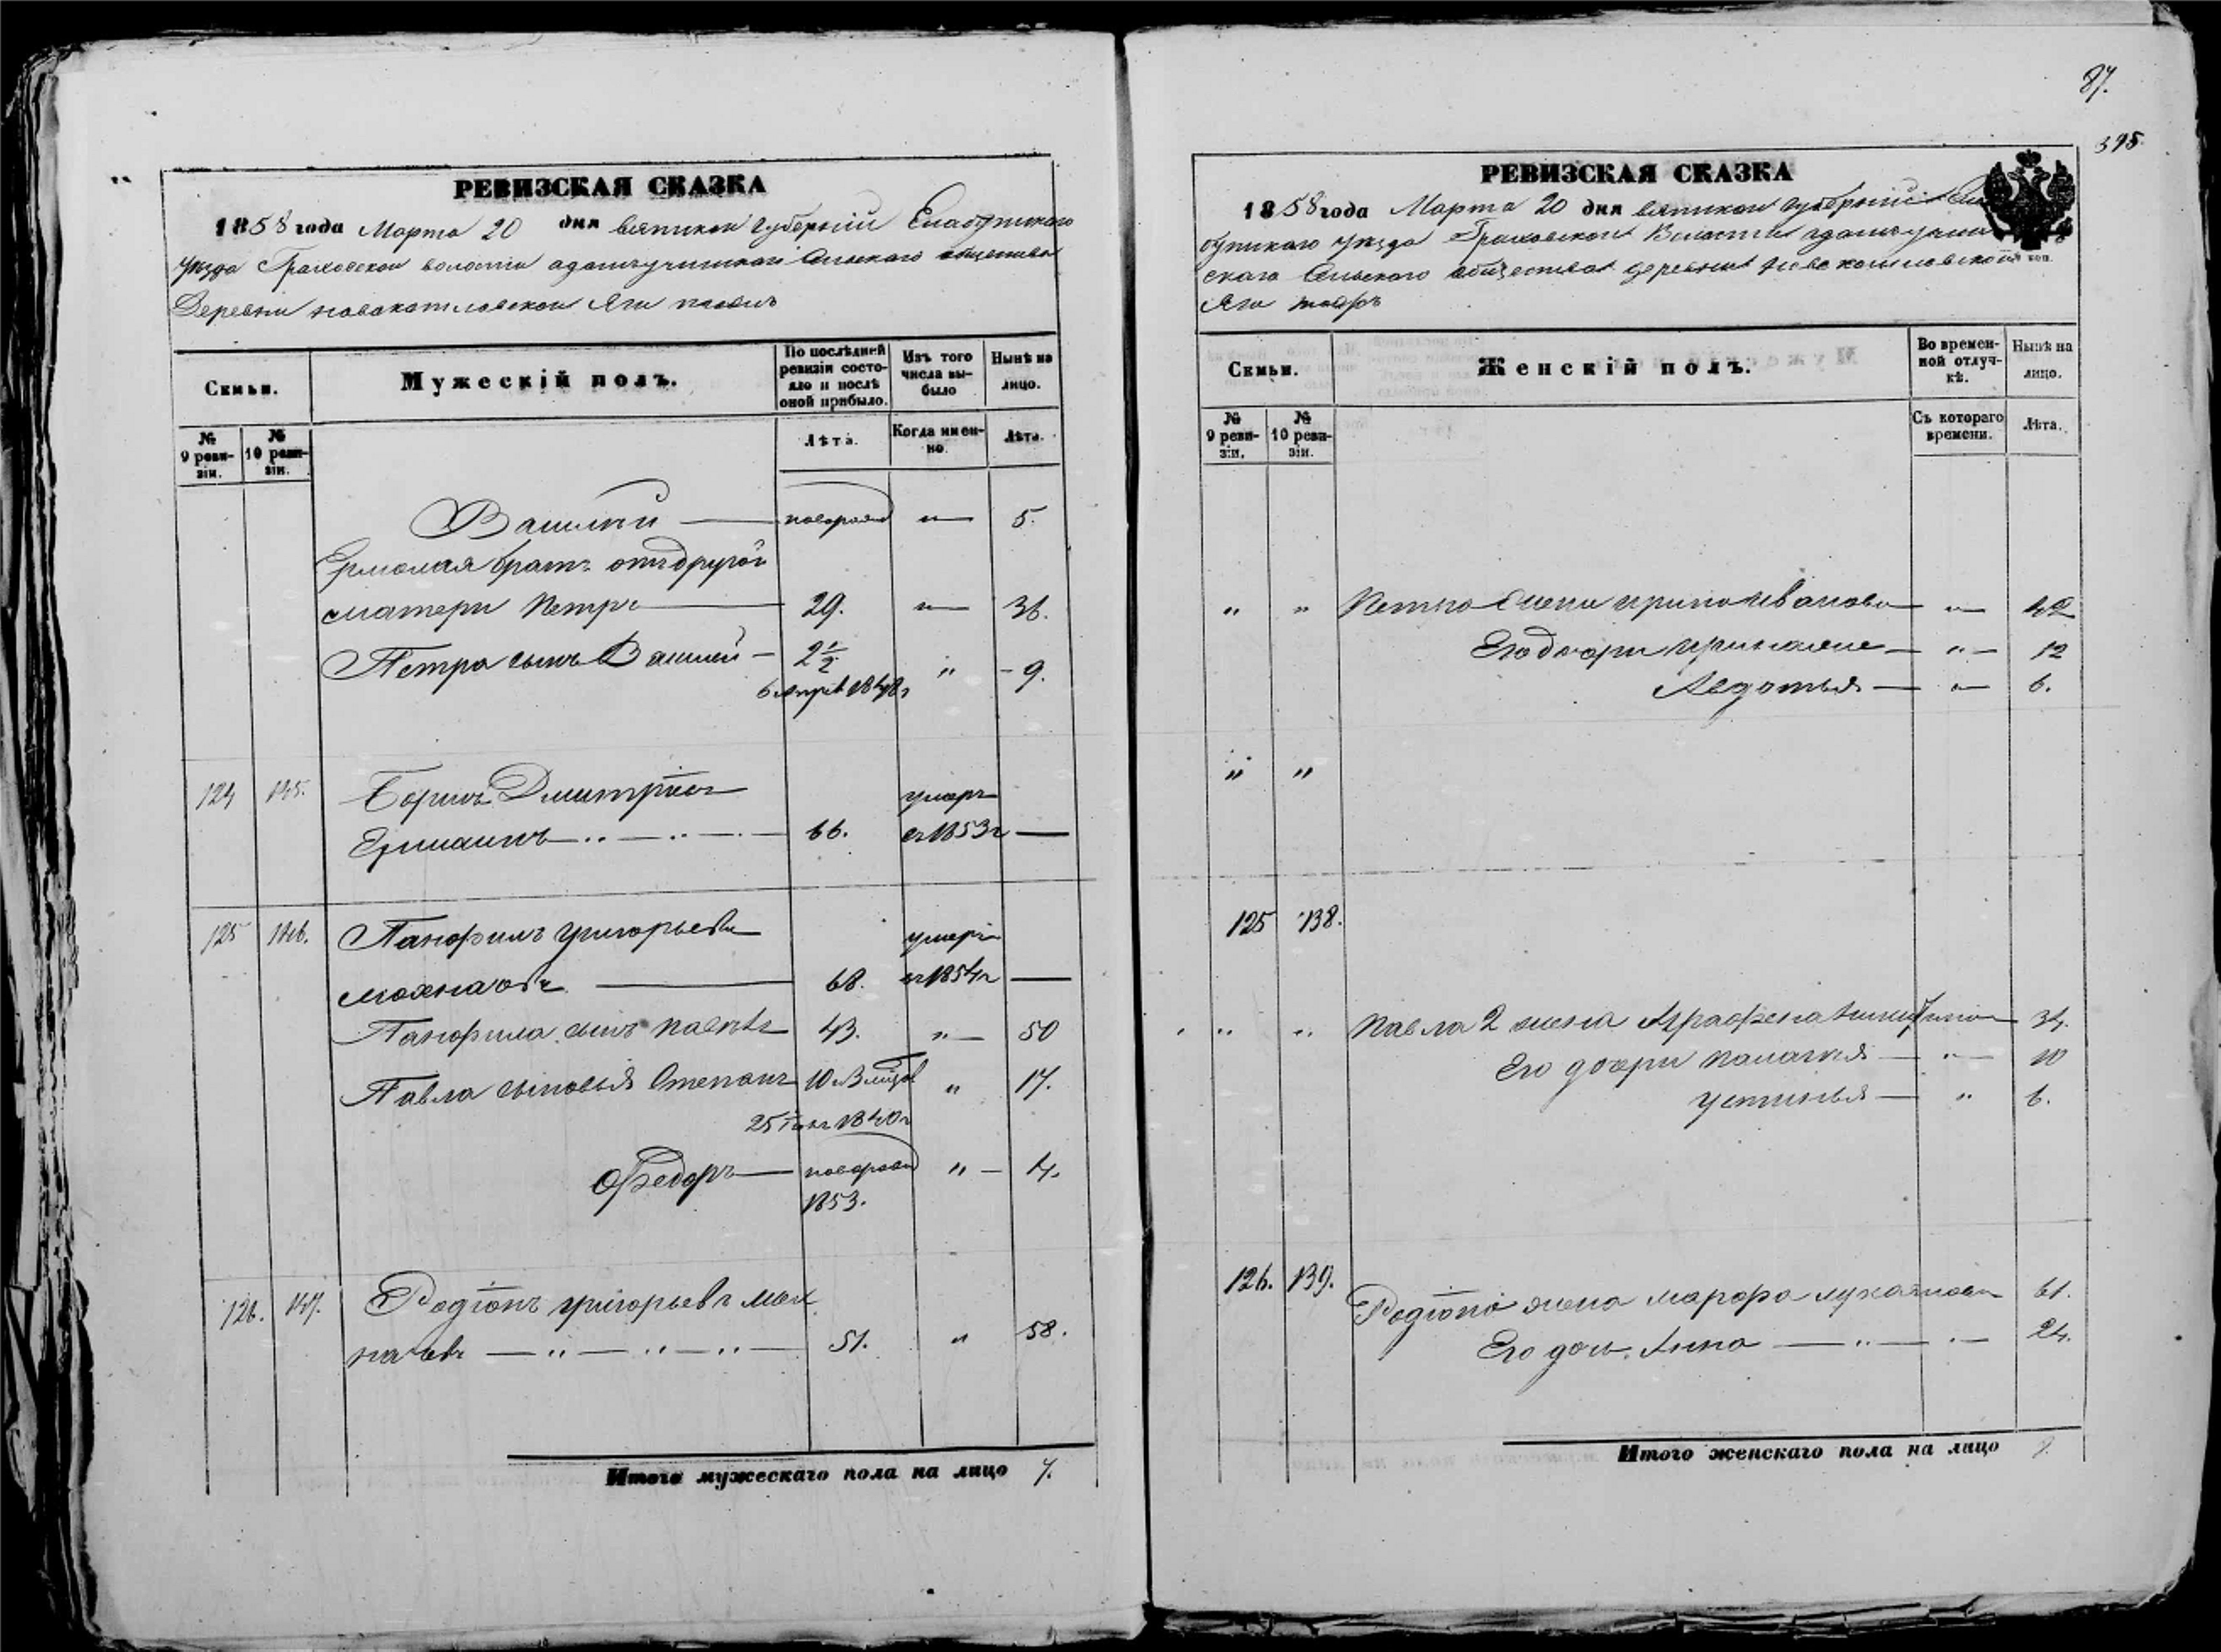 87.
395.
РЕВИЗСКАЯ СКАЗКА
1858 года Марта 20 дня Вятской Губерніи Елабужского
уѣзда Граховской волости сельского общества
Деревни
Семьи.
Мужескій полъ.
По послѣдней ревизіи состояло и послѣ оной прибыло.
Изъ того числа выбыло
Нынѣ на лицо.
№ 9 ревизіи.
№ 10 ревизіи.
Лѣта.
Когда именно.
Лѣта.
Василій — новорожд — 5.
Ермолая братъ отъ другой
матери Петръ — 29. — 36.
Петра сынъ Василій — 2 1/2 " — 9.
124 145. Борисъ Дмитріевъ умеръ
— " — " — 66. въ 1853 г —
125 146. Панфилъ Григорьевъ умеръ
Мохначовъ — 68. въ 1854 г —
Панфила сынъ Павелъ 43. " — 50
Павла сыновья Степанъ 10 " 17.
25 1840 г
Федоръ — новорожд " — 4.
1853.
126. 147. Родіонъ Григорьевъ Мох
начовъ — " — " — " — 51. " 58.
Итого мужескаго пола на лицо 7.
РЕВИЗСКАЯ СКАЗКА
1858 года Марта 20 дня Вятской Губерніи Ела
бужского уѣзда Граховской Волости
ского сельского общества деревни
Семьи.
Женскій полъ.
Во временной отлучкѣ.
Нынѣ на лицо.
№ 9 ревизіи.
№ 10 ревизіи.
Съ котораго времени.
Лѣта.
" " Петра жена Ирина Иванова — " — 42
Его дочери — " — 12
Авдотья — " — 6.
" "
125 138.
" " Павла 2 жена Аграфена — 34.
Его дочери Палагея — " — 10
Устинья — " 6.
126. 139. Родіона жена Марфа 61.
Его дочь Анна — " — " — 24.
Итого женскаго пола на лицо